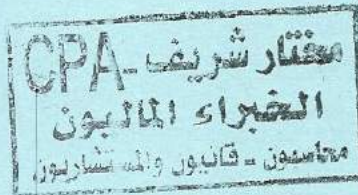 مختار شريف - CPA
الخبراء الماليون
محاسبون - قانونيون والمستشارون